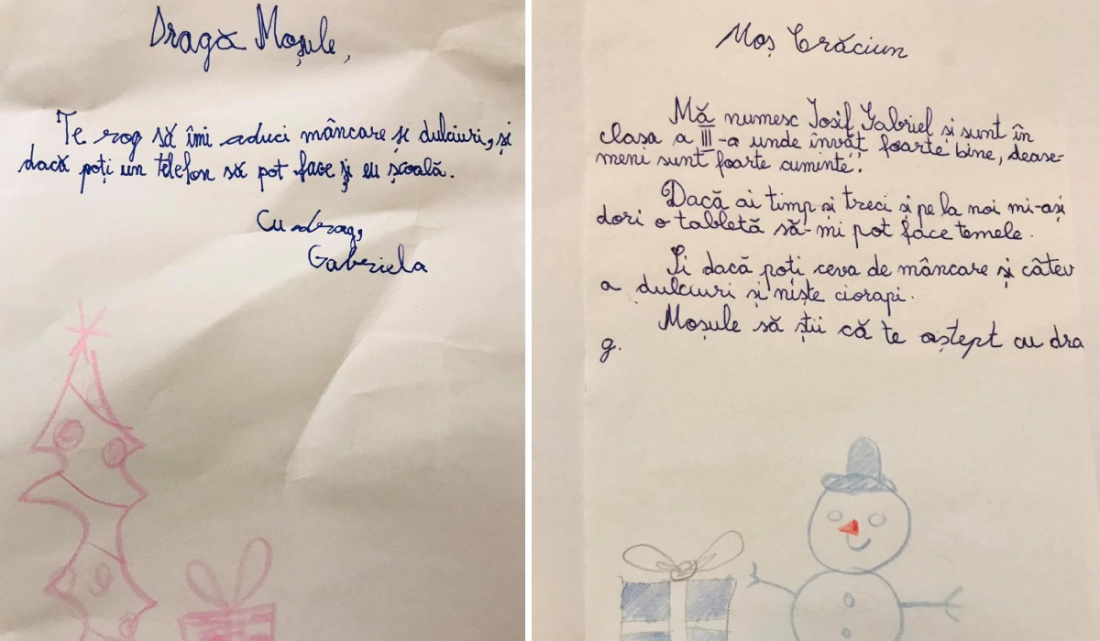 Dragă Moșule,
Te rog să îmi aduci mâncare și dulciuri, și
dacă poți un telefon să pot face și eu școală.
Cu drag,
Gabriela
Moș Crăciun
Mă numesc Iosif Gabriel și sunt în
clasa a III-a unde învăț foarte bine, dease-
meni sunt foarte cuminte.
Dacă ai timp și treci și pe la noi mi-ași
dori o tabletă să-mi pot face temele.
Și dacă poți ceva de mâncare și câtev
a dulciuri și niște ciorapi.
Moșule să știi că te aștept cu dra
g.